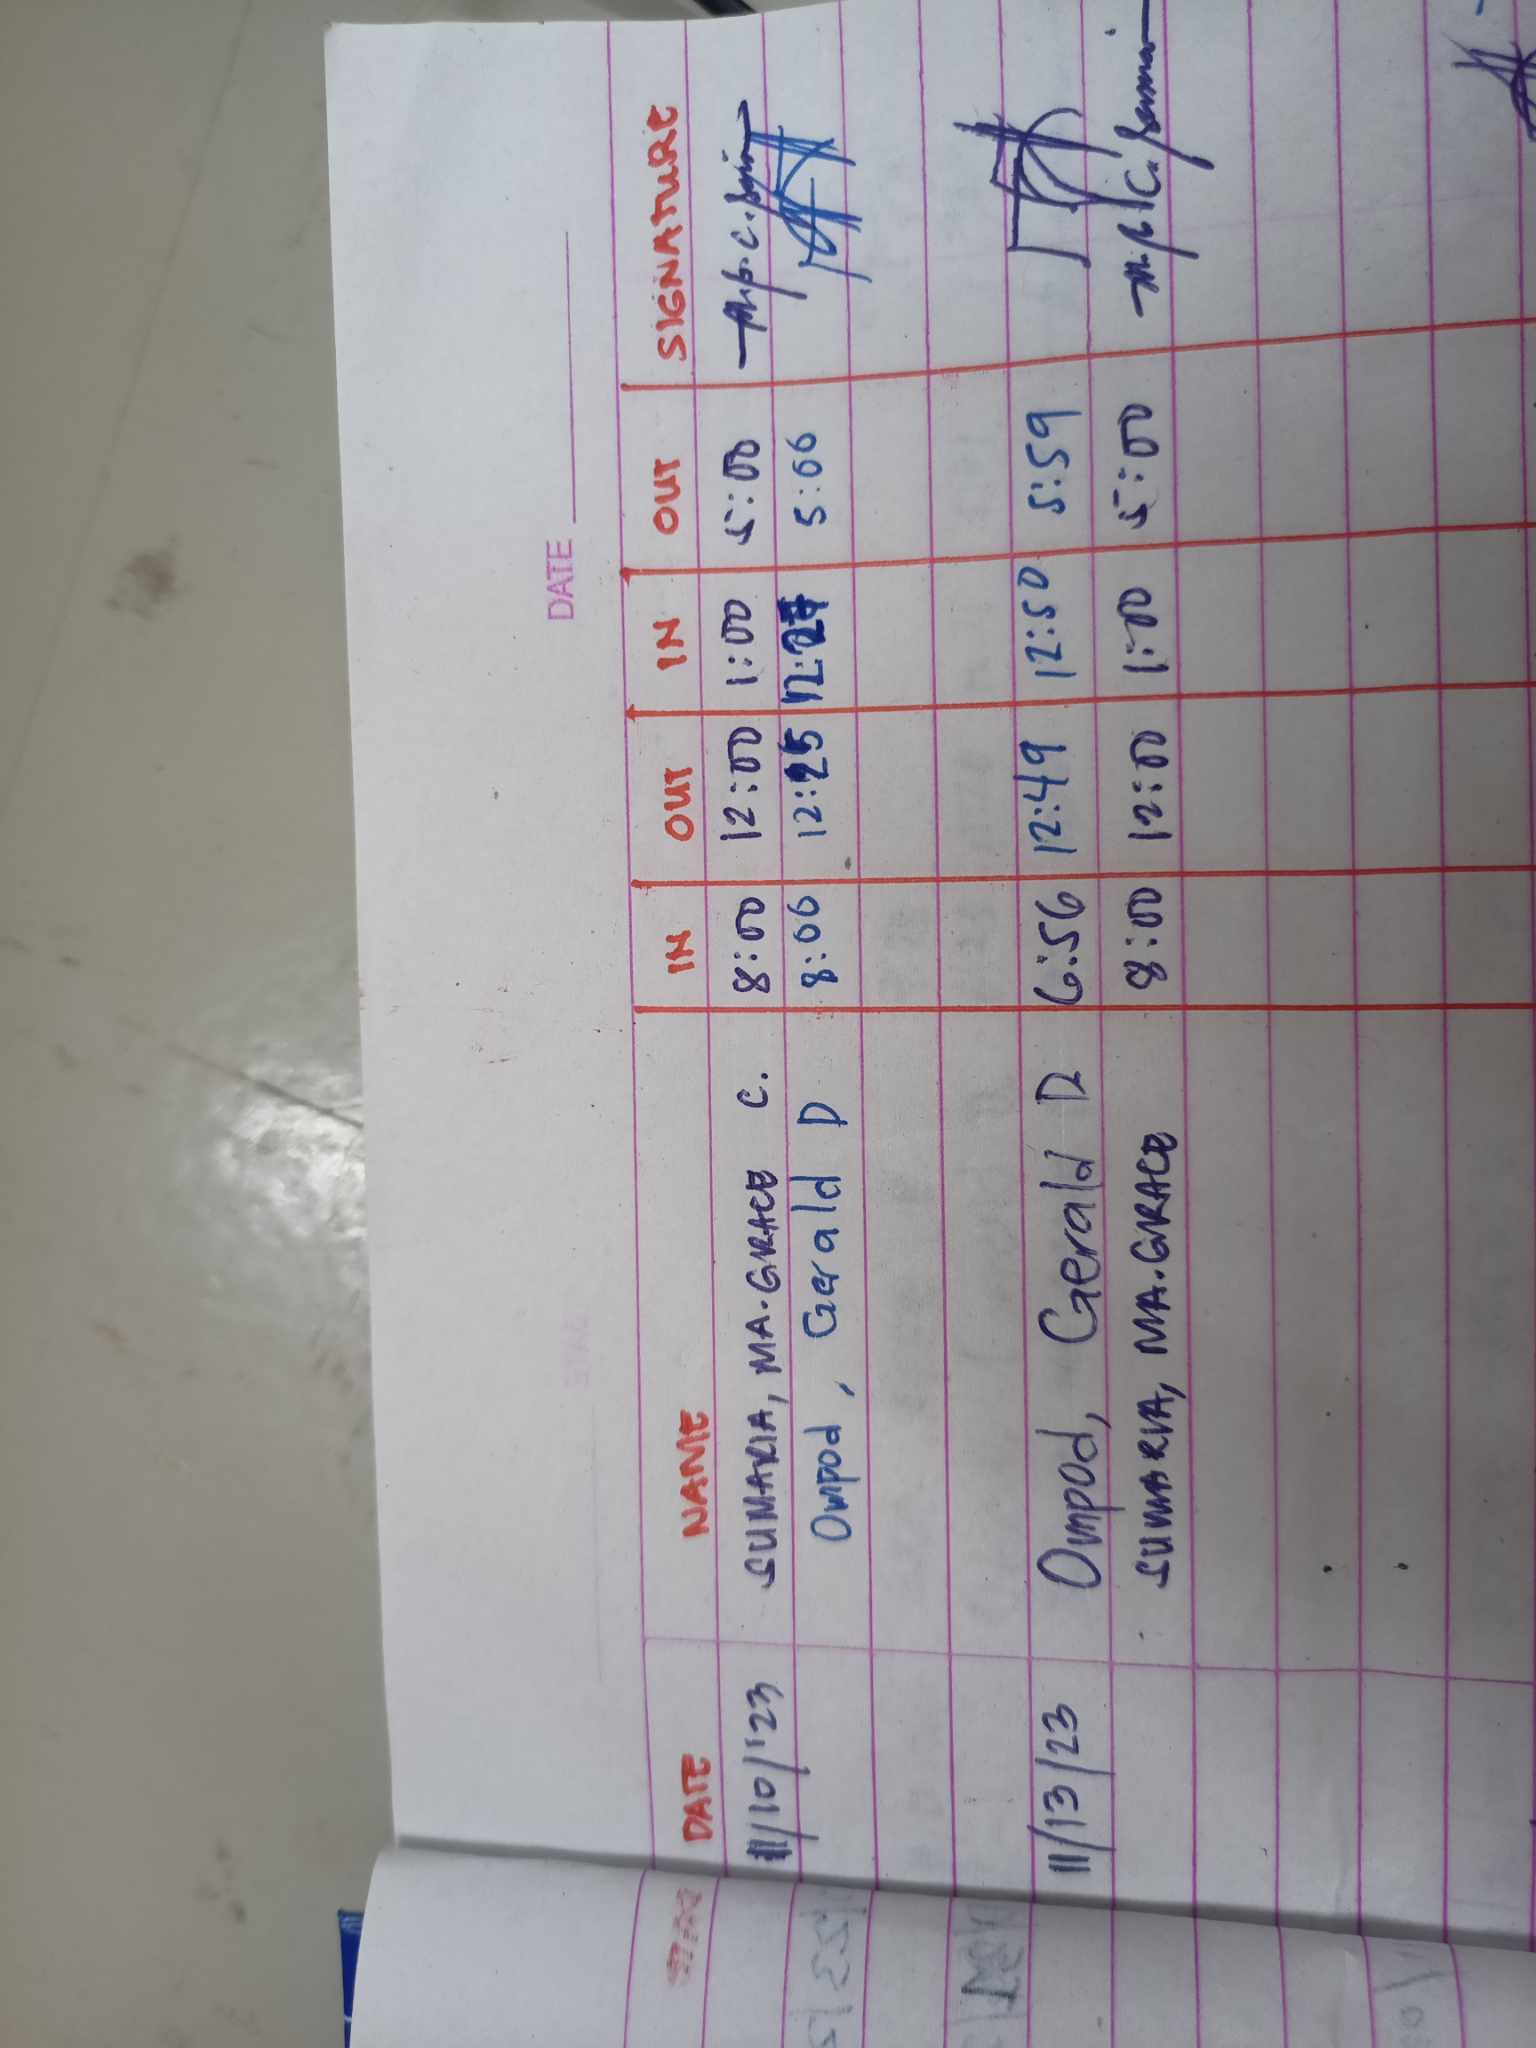 DATE
DATE NAME IN OUT IN OUT SIGNATURE
11/10/'23 SUMARIA, MA. GRACE C. 8:00 12:00 1:00 5:00
Ompod, Gerald D 8:00 12:25 12:27 5:00
11/13/23 Ompod, Gerald D 6:56 12:49 12:50 5:59
SUMARIA, MA. GRACE 8:00 12:00 1:00 5:00